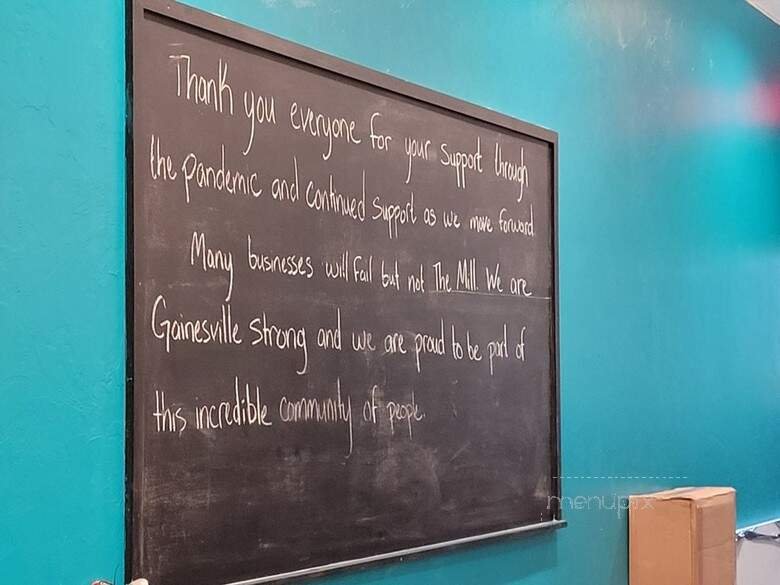 Thank you everyone for your support through
the pandemic and continued support as we move forward
Many businesses will fail but not The Mill. We are
Gainesville strong and we are proud to be part of
this incredible community of people.
menupix